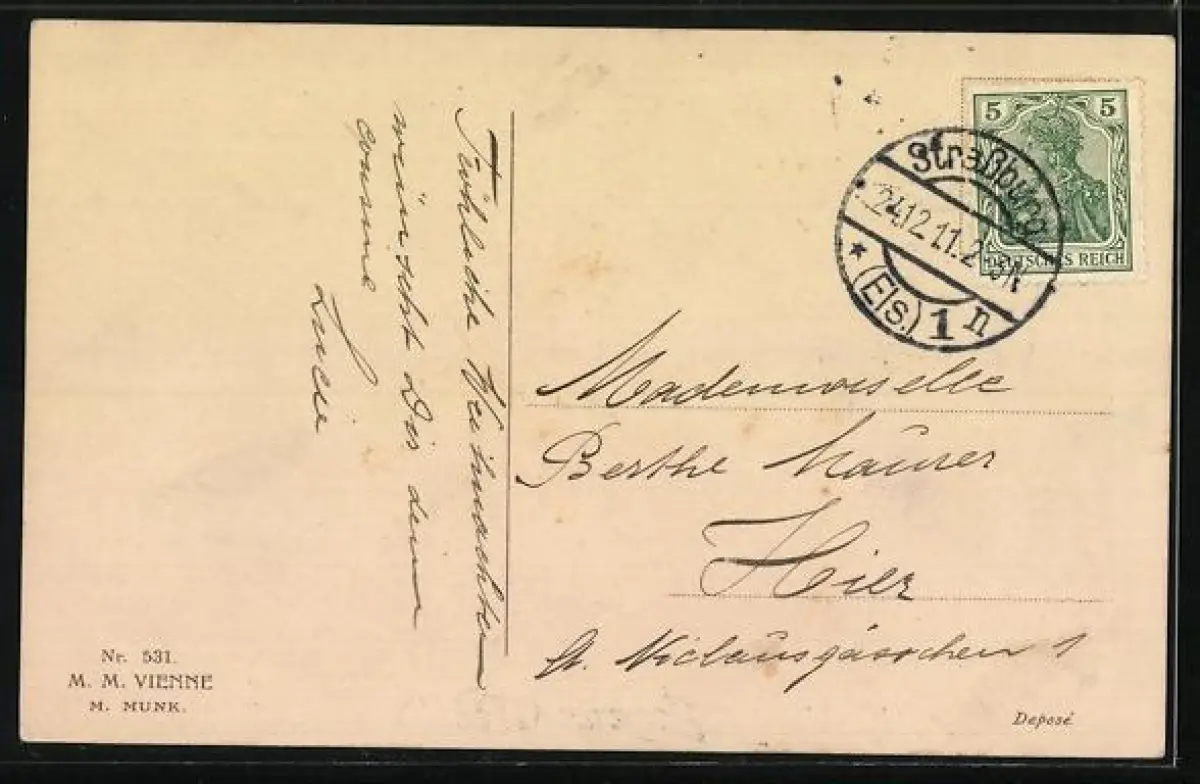 Fröhliche Weihnachten
wünscht Dir deine
cousine
Lucie
5 5
DEUTSCHES REICH
Straßburg
24.12.11.2-3N
* (Els.) 1 n
Mademoiselle
Berthe Maurer
Hier
St. Niclausgässchen 1
Nr. 531.
M. M. VIENNE
M. MUNK.
Deposé